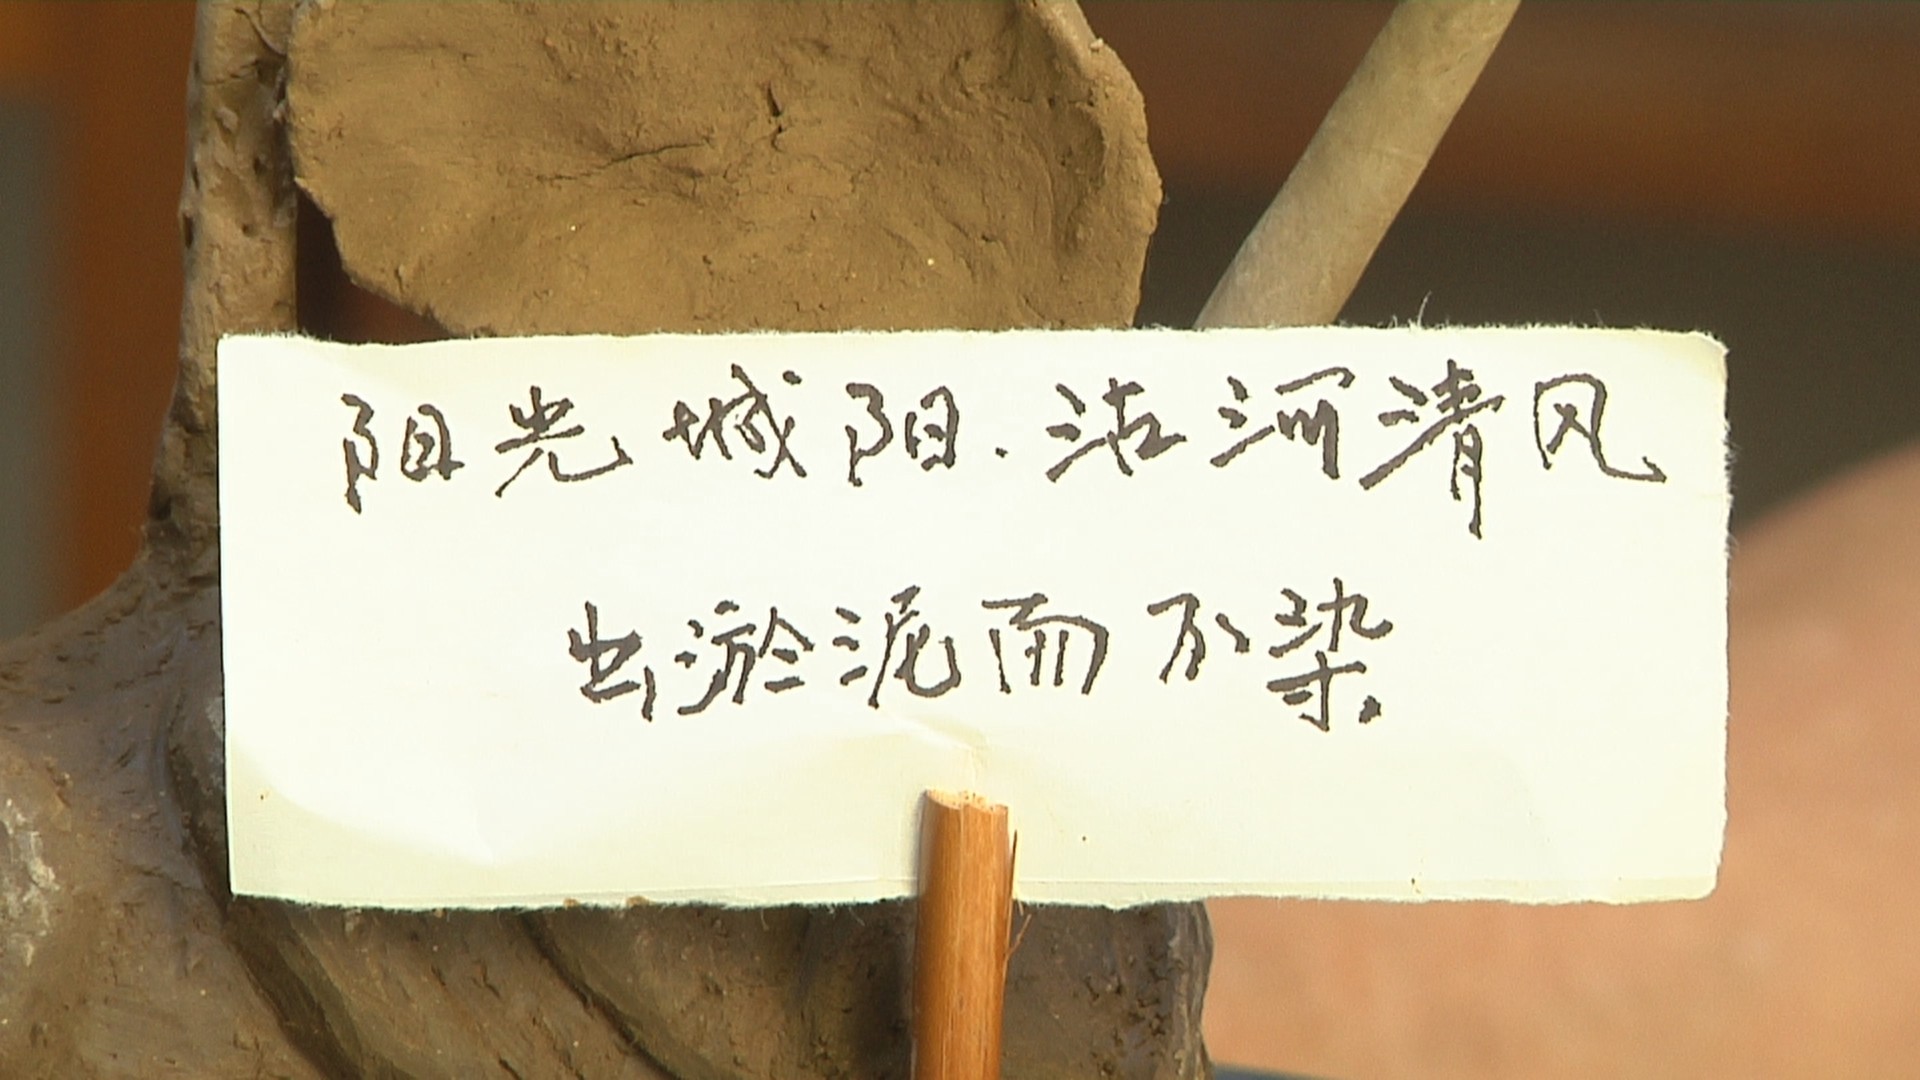 阳光城阳.沽河清风
出淤泥而不染